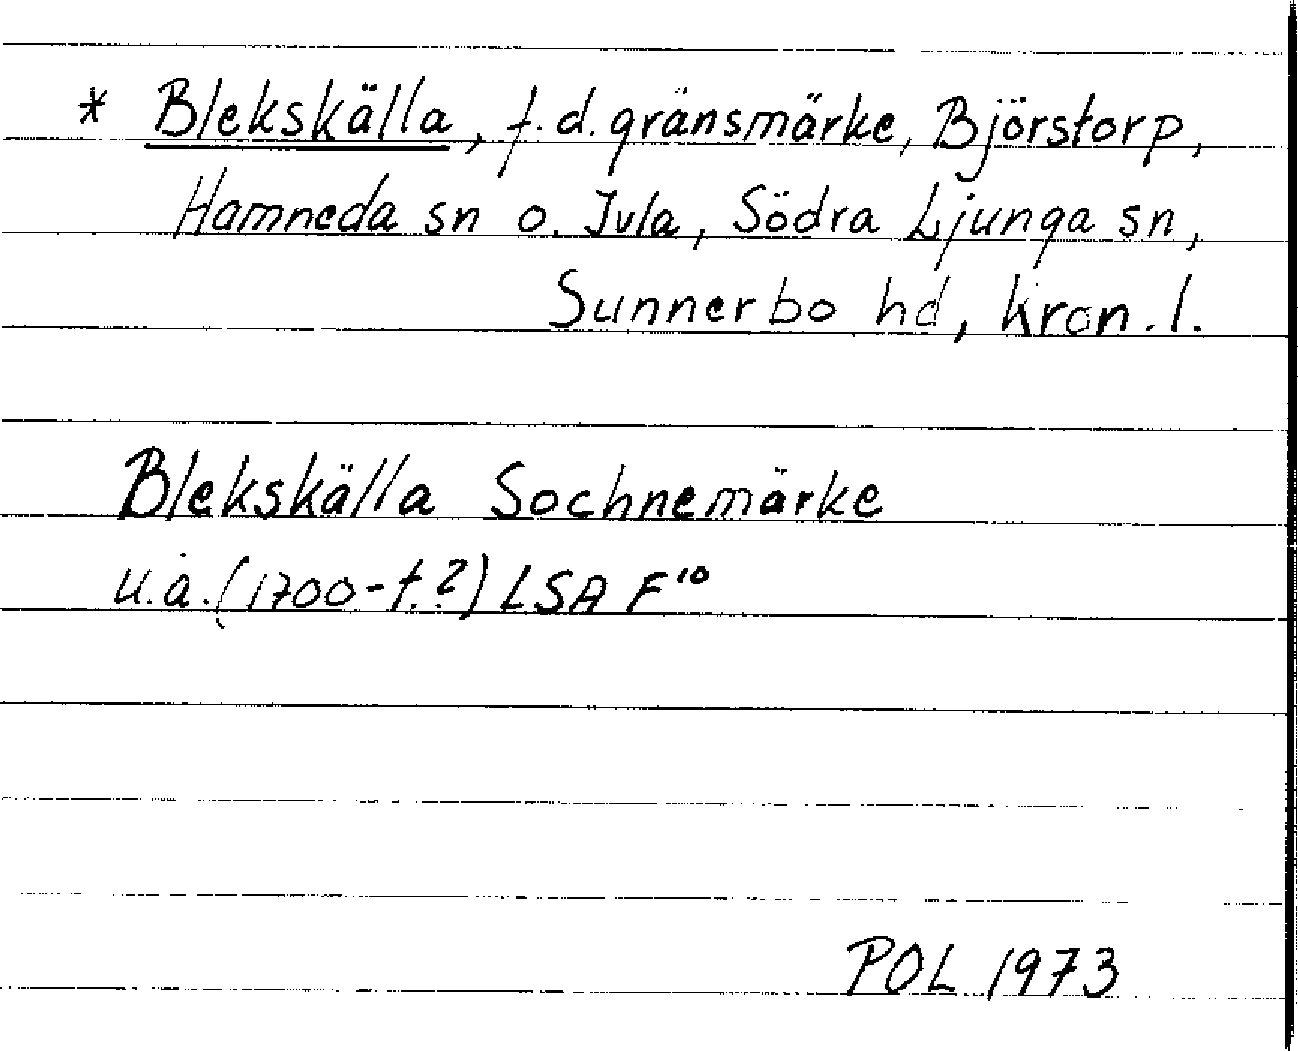 * Blekskälla, f.d. gränsmärke, Björstorp,
Hamneda sn o. Ivla, Södra Ljunga sn,
Sunnerbo hd, Kron. l.
Blekskälla Sochnemärke
u.å. (1700-t.?) LSA F¹⁰
POL 1973